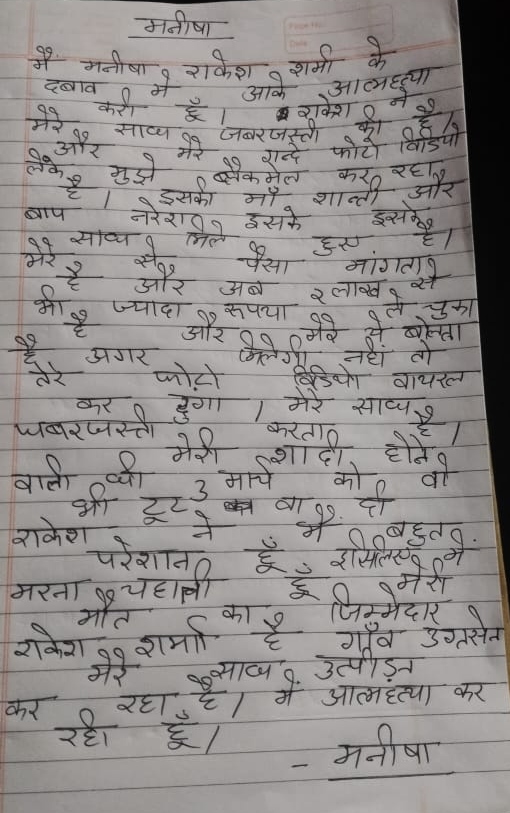 मनीषा
मैं मनीषा राकेश शर्मा के
दबाव में आके आत्महत्या
करी हूँ। राकेश ने
मेरे साथ जबरजस्ती की है।
और मेरे गन्दे फोटो विडियो
लेके मुझे ब्लैकमेल कर रहा
है। इसकी माँ शान्ती और
बाप नरेश इसके इसके
साथ मिले हुए है।
मेरे से पैसा मांगता
है और अब २ लाख से
भी ज्यादा रूपया ले चुका
है और मेरे से बोलता
है अगर मिलेगी नहीं तो
तेरे फोटो विडियो वायरल
कर दुगा। मेरे साथ
जबरजस्ती करता है।
मेरी शादी होने
वाली थी 3 मार्च को वो
भी टूट वा दी
राकेश ने मैं बहुत
परेशान हूँ इसिलिए में
मरना चहाती हूँ मेरी
मौत का जिम्मेदार
राकेश शर्मा है गाँव उग्रसेन
मेरे साथ उत्पीड़न
कर रहा है। में आत्महत्या कर
रही हूँ।
- मनीषा